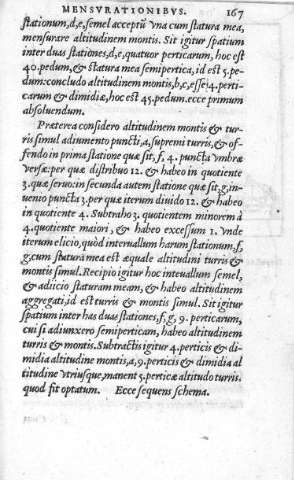 MENSVRATIONIBVS. 167
stationum,d,e,semel acceptũ vna cum statura mea,
mensurare altitudinem montis. Sit igitur spatium
inter duas stationes,d,e,quatuor perticarum, hoc est
40.pedum,& statura mea semipertica, id est 5.pe-
dum:concludo altitudinem montis,b,c,esse,4.perti-
carum & dimidiæ, hoc est 45.pedum.ecce primum
absoluendum.
Præterea considero altitudinem montis & tur-
ris simul adiumento puncti,a,supremi turris,& of-
fendo in prima statione quæ sit,f, 4. pũcta vmbræ
versæ: per quæ distribuo 12. & habeo in quotiente
3.quæ seruo:in secunda autem statione quæ sit,g,in-
uenio puncta 3.per quæ iterum diuido 12. & habeo
in quotiente 4. Subtraho 3. quotientem minorem à
4.quotiente maiori, & habeo excessum 1. vnde
iterum elicio,quòd interuallum harum stationum,f,
g,cum statura mea est æquale altitudini turris &
montis simul.Recipio igitur hoc interuallum semel,
& adiicio staturam meam, & habeo altitudinem
aggregati,id est turris & montis simul. Sit igitur
spatium inter has duas stationes,f,g, 9. perticarum,
cui si adiunxero semiperticam, habeo altitudinem
turris & montis.Subtractis igitur 4.perticis & di-
midia altitudine montis,a,9.perticis & dimidia al
titudine vtriusque,manent 5.perticæ altitudo turris.
quod fit optatum. Ecce sequens schema.